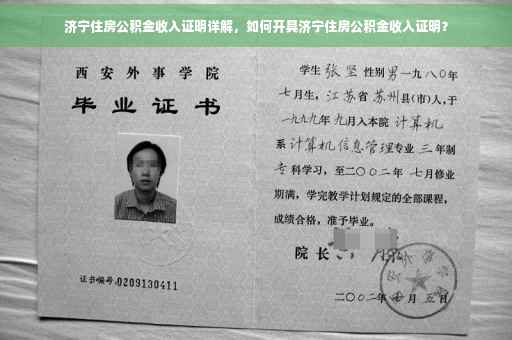 济宁住房公积金收入证明详解，如何开具济宁住房公积金收入证明？
西安外事学院
毕业证书
证书编号:0209130411
学生 张坚 性别 男 一九八〇年
七月生，江苏省 苏州县(市)人,于
一九九九年 九月入本院 计算机
系 计算机信息管理专业 三 年制
专 科学习，至二〇〇二年 七月修业
期满，学完教学计划规定的全部课程，
成绩合格，准予毕业。
院长
二〇〇二年 七 月 五 日